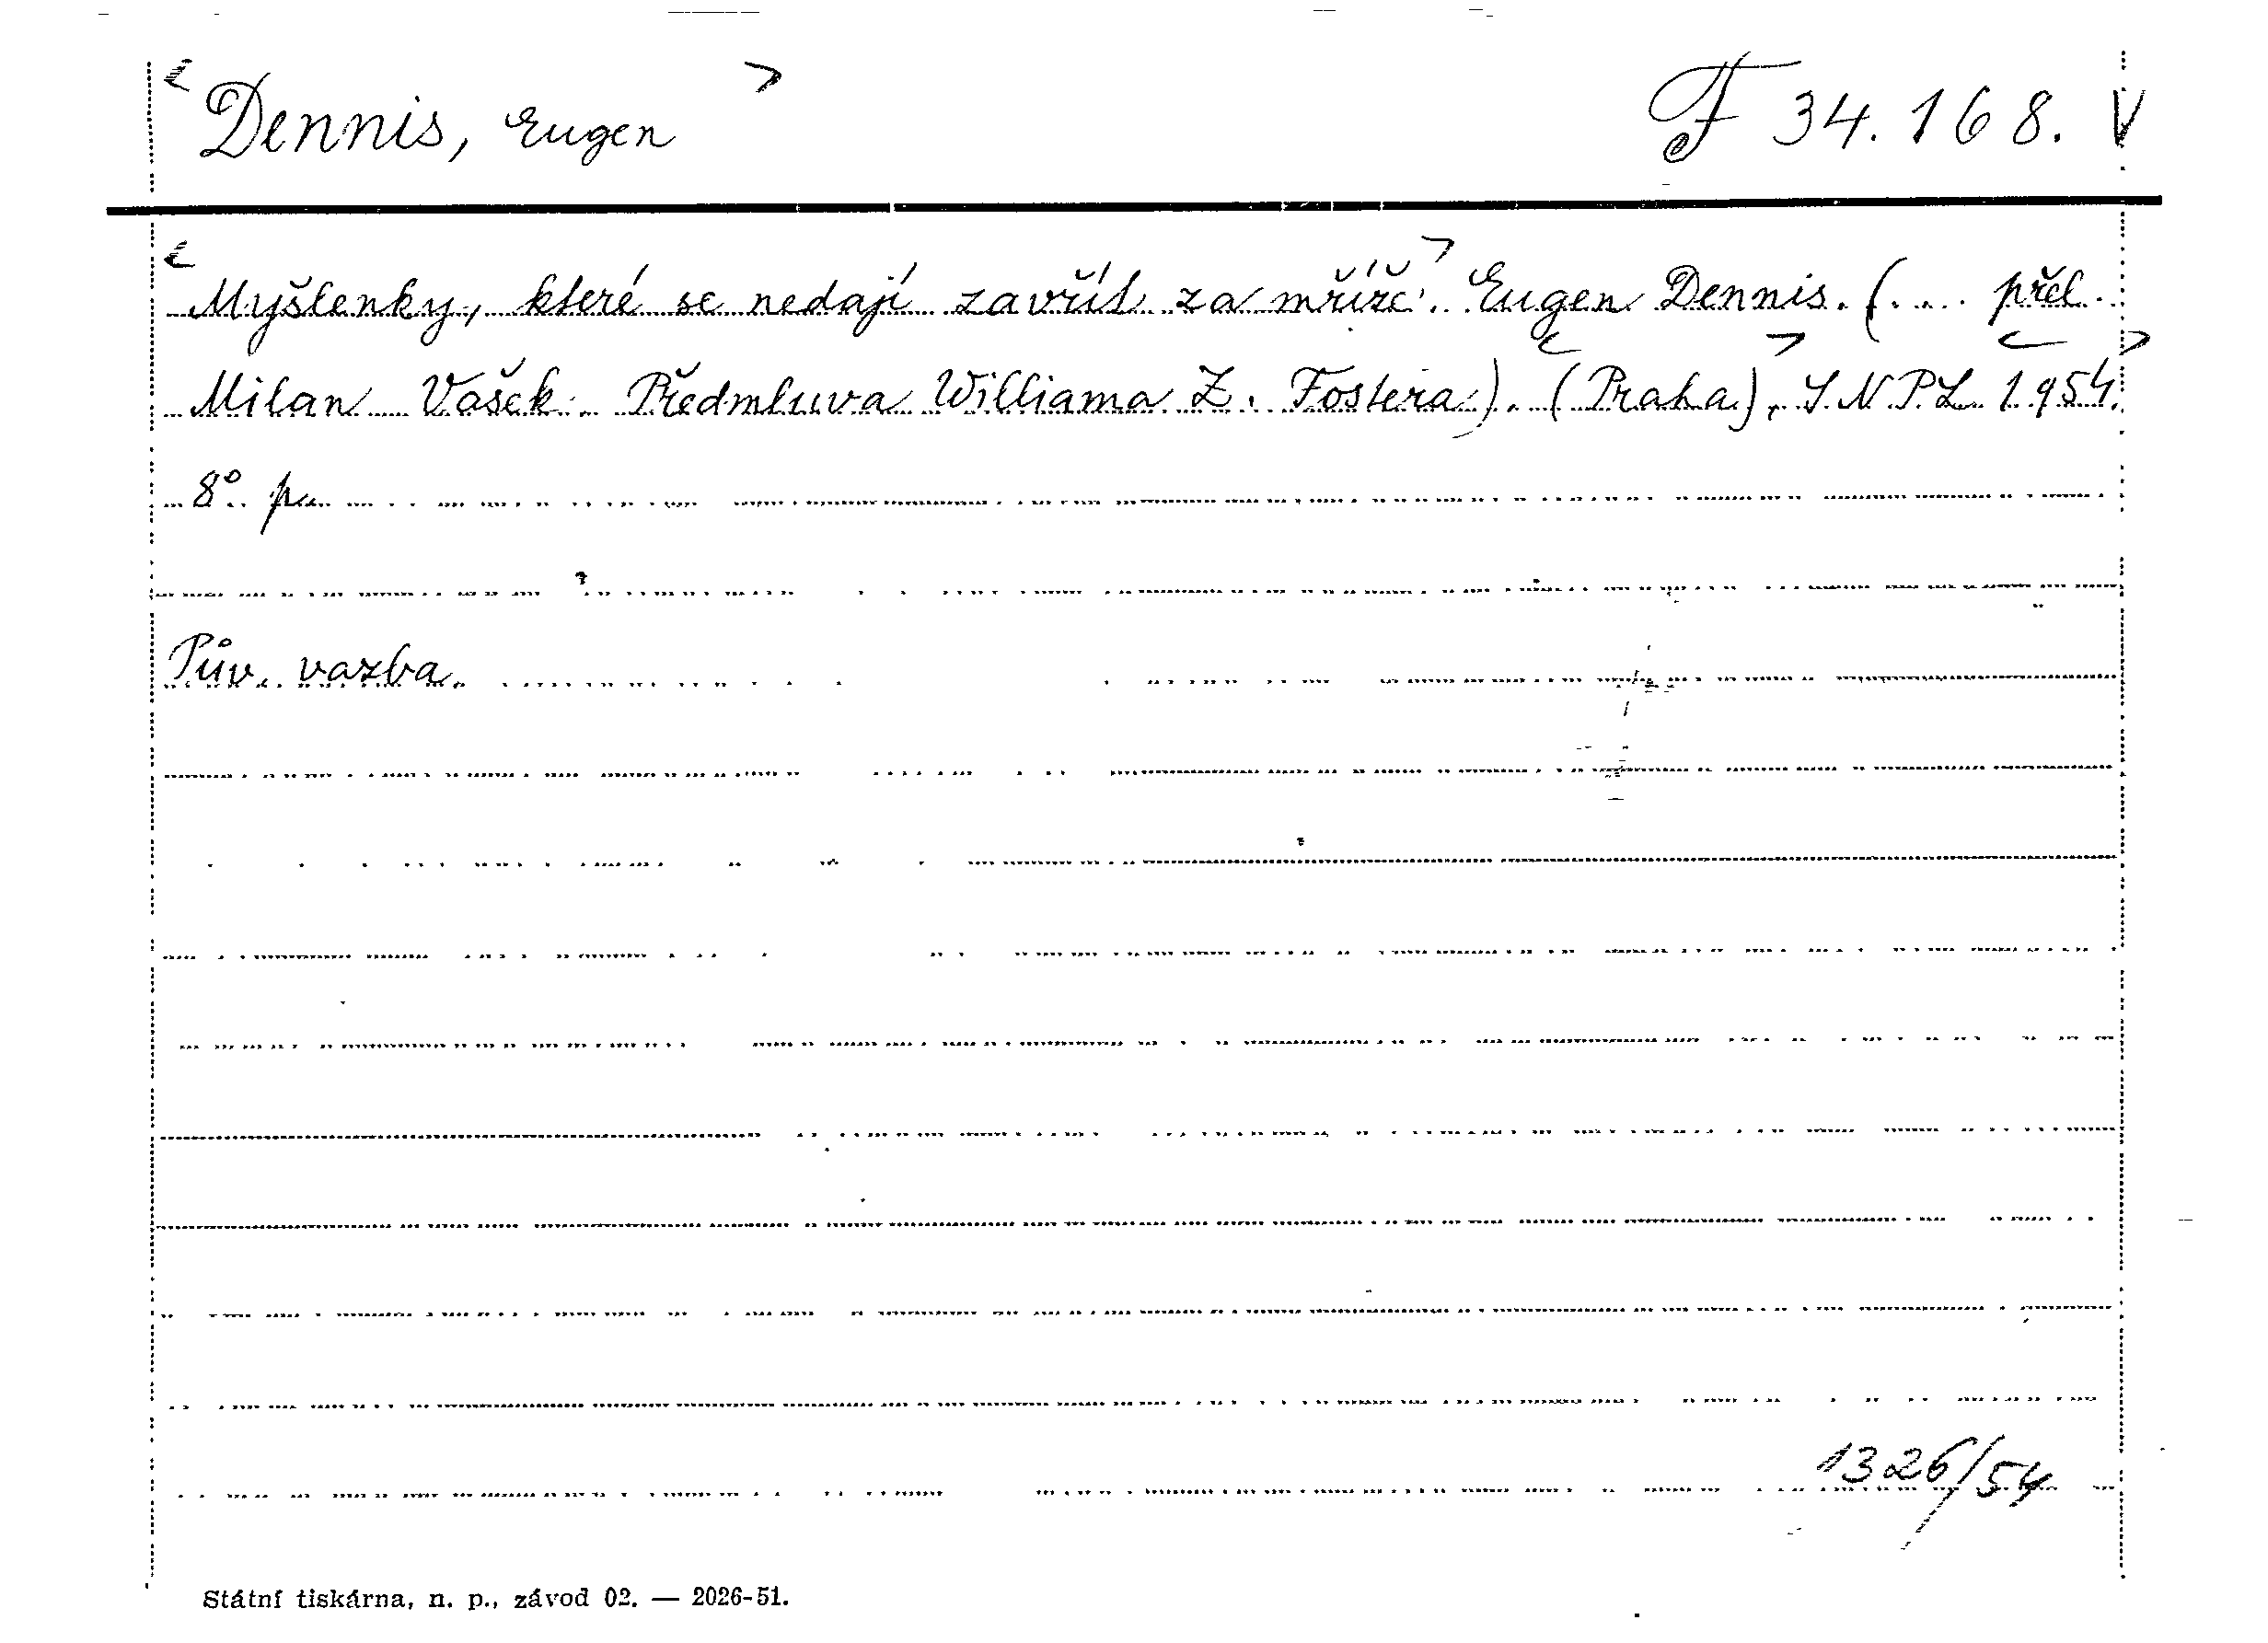 Dennis, Eugen F 34.168. V
Myšlenky, které se nedají zavřít za mříže. Eugen Dennis. (.... přel.
Milan Vašek. Předmluva Williama Z. Fostera). (Praha), S.N.P.L. 1954.
8°. p.
Pův. vazba.
1326/54
Státní tiskárna, n. p., závod 02. — 2026-51.